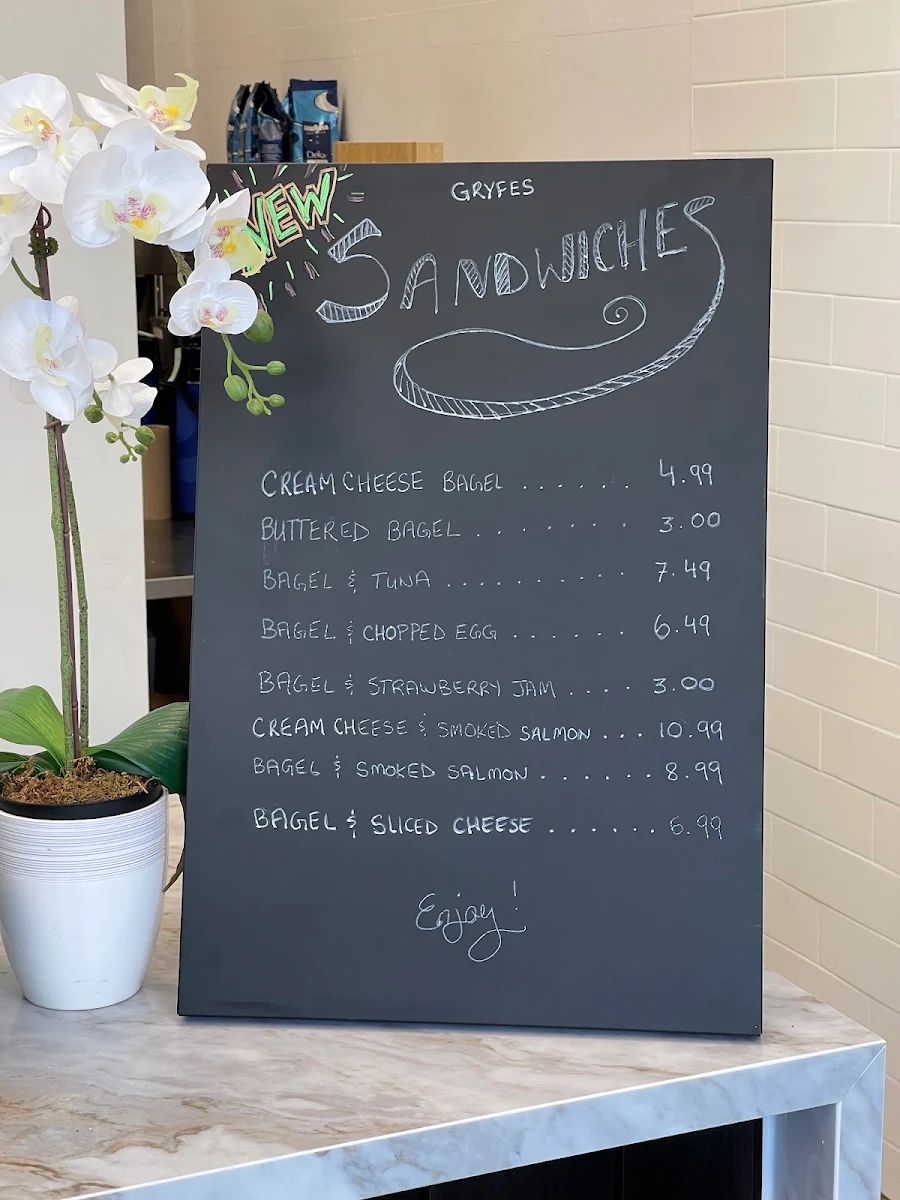 LAVAZZA
Dek
GRYFES
NEW
SANDWICHES
CREAM CHEESE BAGEL . . . . . . 4.99
BUTTERED BAGEL . . . . . . . . 3.00
BAGEL & TUNA . . . . . . . . . . 7.49
BAGEL & CHOPPED EGG . . . . . . 6.49
BAGEL & STRAWBERRY JAM . . . . 3.00
CREAM CHEESE & SMOKED SALMON . . . 10.99
BAGEL & SMOKED SALMON . . . . . . 8.99
BAGEL & SLICED CHEESE . . . . . . 6.99
Enjoy!